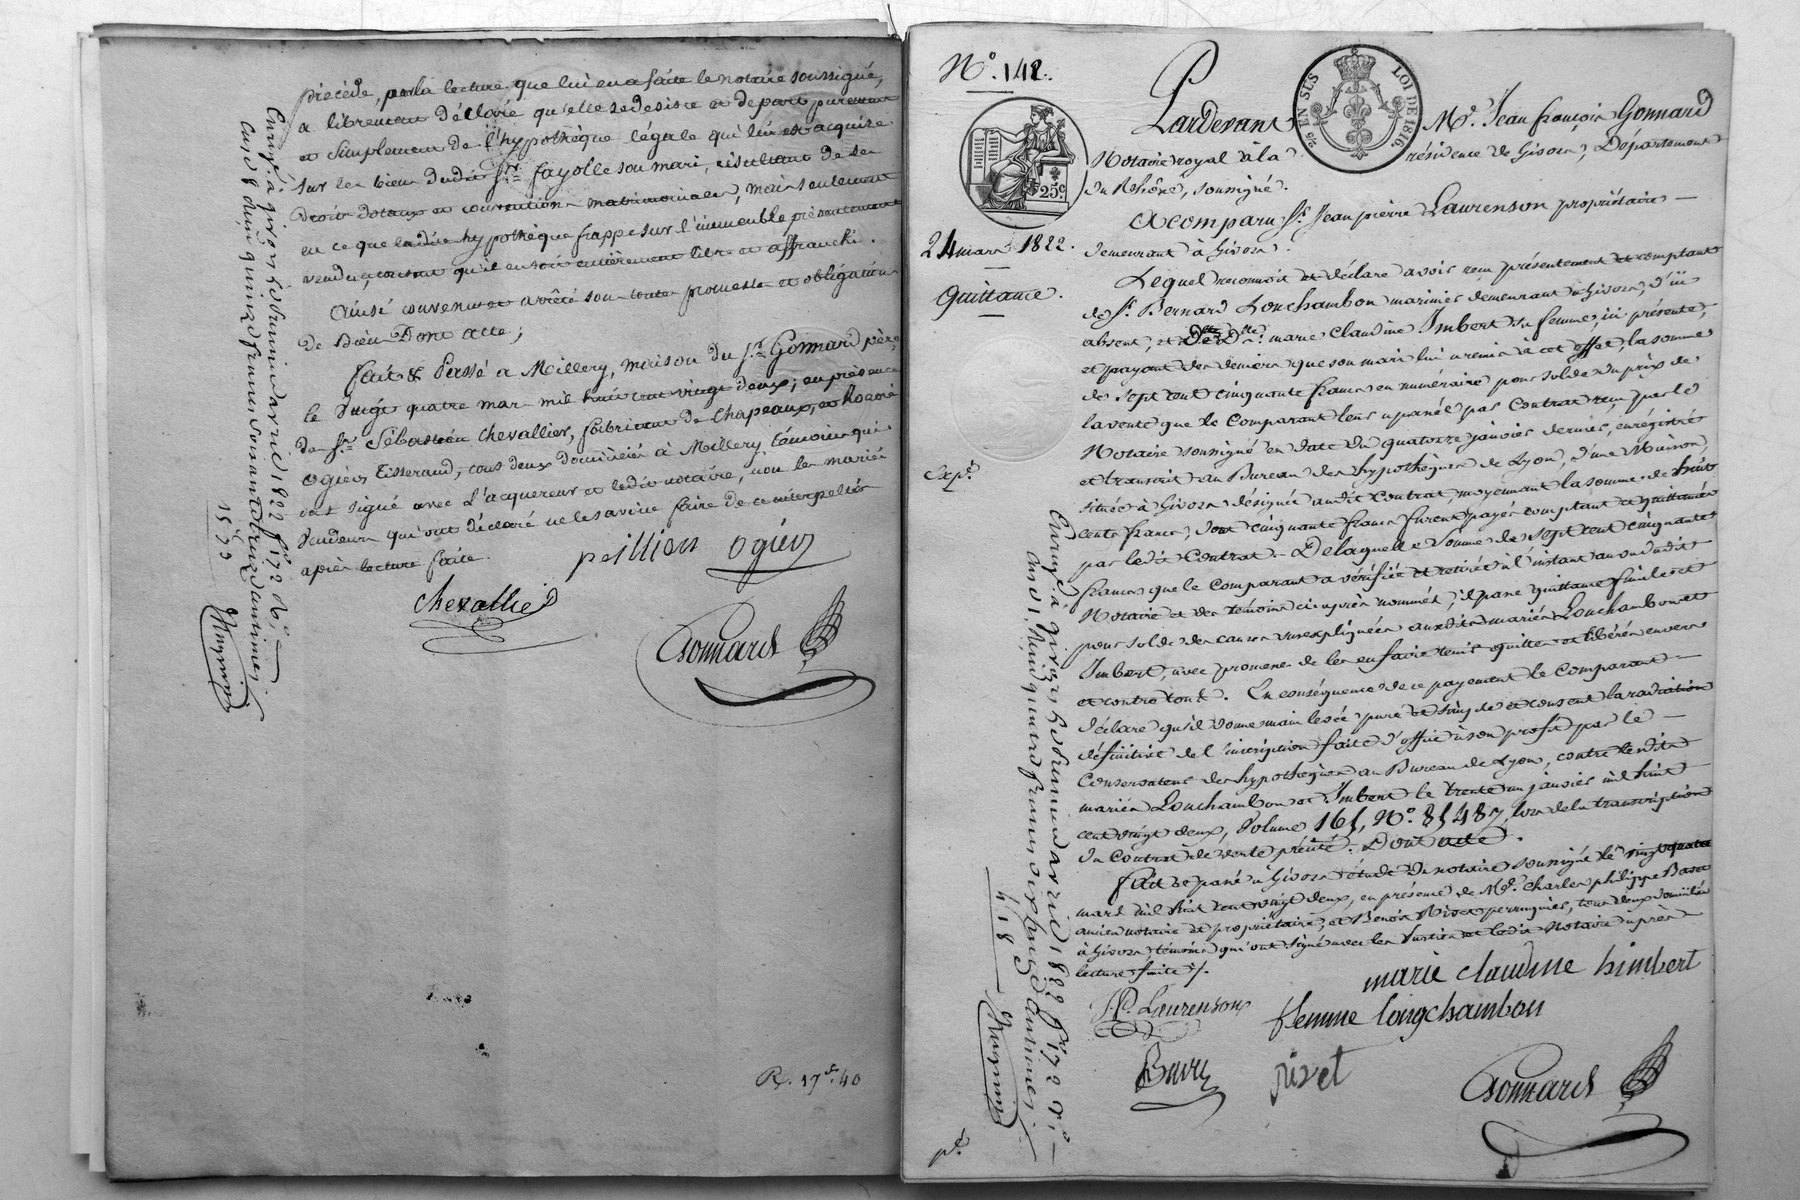 précède, par la lecture que lui en a faite le notaire soussigné,
a librement déclaré qu'elle se desiste et depart purement
et simplement de l'hypothèque légale qui lui est acquise
sur les biens dudit Sr. fayolle son mari, résultant de ses
Droits dotaux et conventions matrimoniales, mais seulement
en ce que ladite hypothèque frappe sur l'immeuble présentement
vendu, consent qu'il en soit entièrement libre et affranchi.
Ainsi convenu et arrêté sous toutes promesses et obligations
de Dieu Dont acte;
fait & Passé a Millery, maison du Sr. Gonnard père,
le vingt quatre mars mil huit cent vingt deux; en présence
de Sr. Sébastien Chevallier, fabricant de Chapeaux, et
ogiés tisserand, tous deux domiciliés à Millery, témoins qui
ont signé avec l'acquereur et ledit notaire, non les mariés
vendeurs qui ont déclaré ne le savoir faire de ce interpellés
après lecture faite.
peillion ogiés
chevallie
Gonnard
Enrégé. à givors le premier avril 1822 fo. 172
15. 73
R. 17f. 40
No. 142.
Pardevant Me. Jean françois Gonnard
Notaire royal à la résidence de Givors, Département
du Rhône, soussigné.
25c.
EN SUS
LOI DE 1816
A comparu Sr. Jean pierre Laurenson propriétaire
24 mars 1822.
demeurant à Givors.
Quittance.
Lequel reconnoit et déclare avoir reçu présentement et comptant
de Sr. Bernard Lonchambon marinier demeurant à Givors, d'ici
absent, et de Dlle. marie Claudine Imbert sa femme, ici présente,
et payant des deniers que son mari lui a remis à cet effet, la somme
de sept cent cinquante francs en numéraire pour solde du prix de
la vente que le Comparant leur a passée par Contrat reçu par le
Notaire soussigné en date du quatorze janvier dernier, enrégistré
et transcrit au Bureau des hypothèques de Lyon, d'une Maison,
Expé.
située à Givors désignée audit Contrat, moyennant la somme de huit
cents francs, dont cinquante francs furent payés comptant et quittancés
par ledit Contrat. De laquelle somme de sept cent cinquante
francs que le Comparant a vérifiée et retirée à l'instant au vu dudit
Notaire et des témoins ci après nommés, il passe quittance finale et
pour solde des causes susexpliquées auxdits mariés Lonchambon et
Imbert, avec promesse de les en faire tenir quittes et libérés envers
et contre tous. En conséquence de ce payement le Comparant
déclare qu'il donne main levée pure et simple et consent la radiation
définitive de l'inscription faite d'office à son profit par le
Conservateur des hypothèques au Bureau de Lyon, contre lesdits
mariés Lonchambon et Imbert le trente un janvier mil huit
cent vingt deux, Volume 161, No. 81487, lors de la transcription
du Contrat de vente précité. Dont acte.
fait et passé à Givors étude du notaire soussigné le vingt quatre
mars mil huit cent vingt deux, en présence de Me. Charles philippe
ancien notaire et propriétaire, et Benoit Rivet perruquier, tous deux domiciliés
à Givors, témoins qui ont signé avec les Parties et ledit Notaire après
lecture faite ./.
marie claudine himbert
J.P. Laurenson
femme longchambon
rivet
Gonnard
Enrégé. à givors le premier avril 1822 fo. 172
4. 18